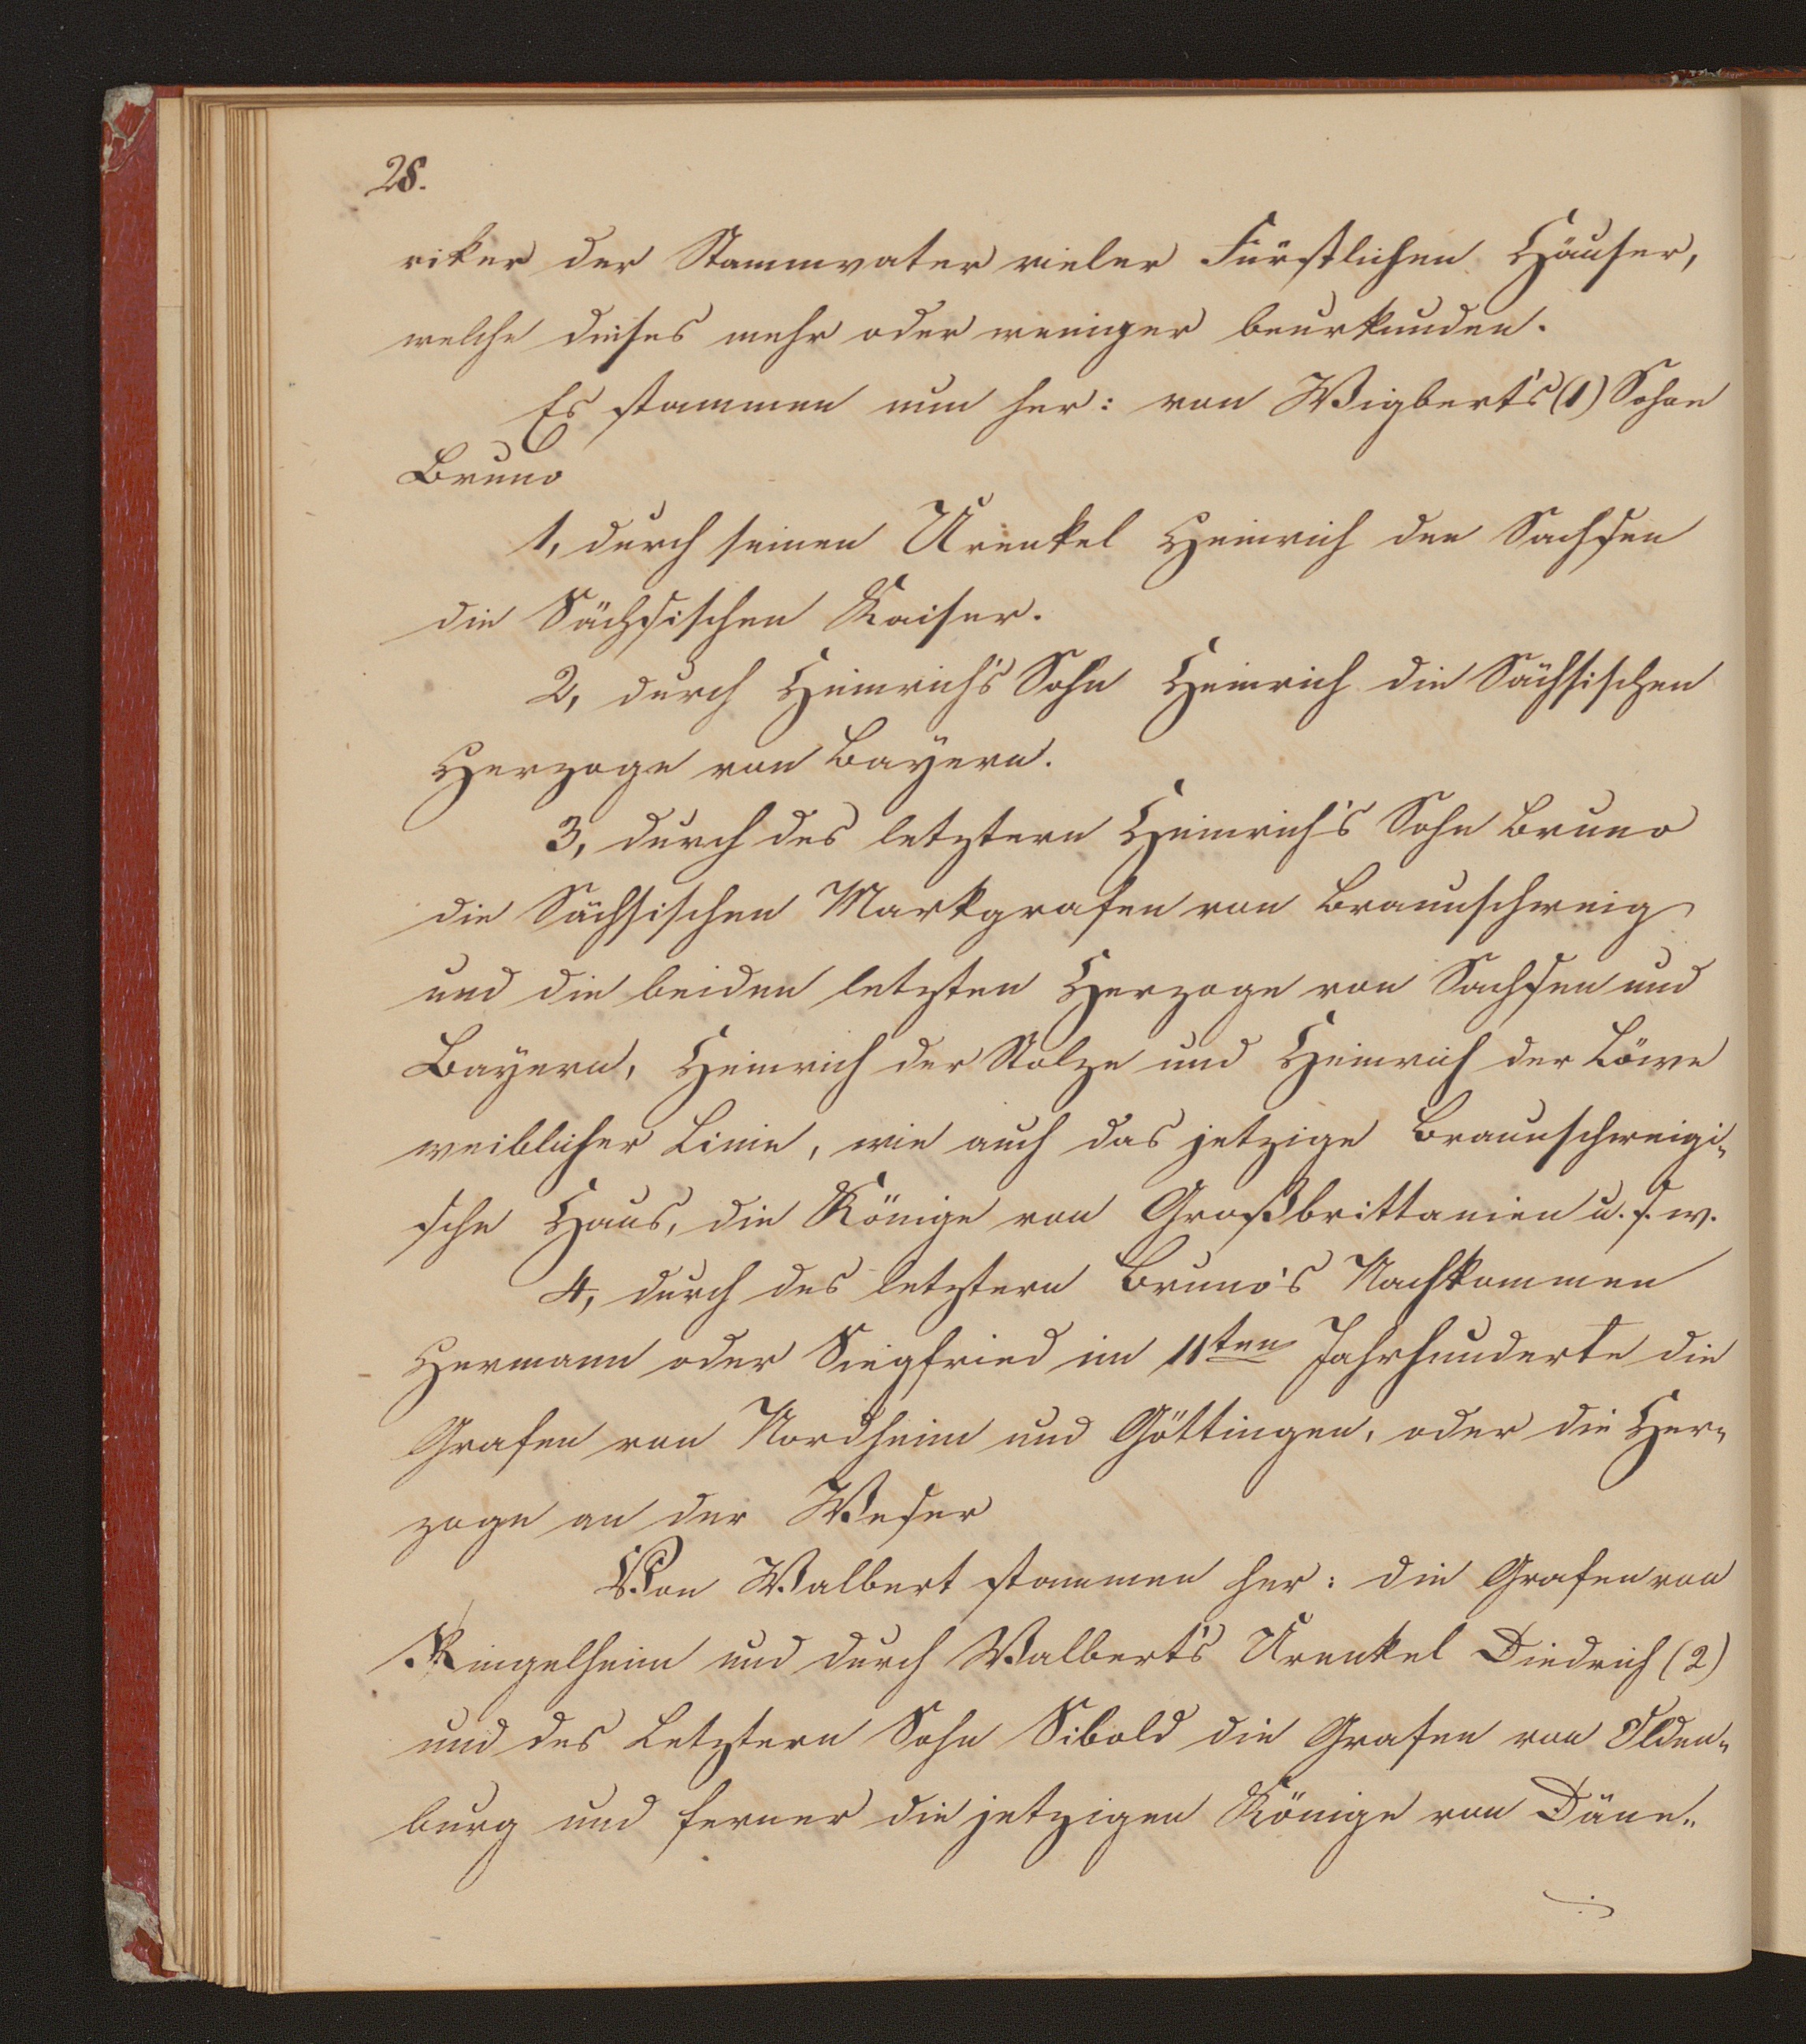 28.
riker der Stammvater vieler Fürstlichen Häuser,
welche dieses mehr oder weniger beurkunden.
Es stammen nun her: von Wigbert's (1) Sohne
Bruno
1, durch seinen Urenkel Heinrich den Sachsen
die Sächsischen Kaiser.
2, durch Heinrich's Sohn Heinrich die Sächsischen
Herzoge von Bayern.
3, durch des letztern Heinrich's Sohn Bruno
die Sächsischen Markgrafen von Braunschweig
und die beiden letzten Herzoge von Sachsen und
Bayern, Heinrich der Stolze und Heinrich der Löwe
weiblicher Linie, wie auch das jetzige Braunschweigi-
sche Haus, die Könige von Großbrittanien u. s. w.
4, durch des letztern Bruno's Nachkommen
Hermann oder Siegfried im 11ten Jahrhunderte die
Grafen von Nordheim und Göttingen, oder die Her-
zoge an der Weser
Von Walbert stammen her: die Grafen von
Ringelheim und durch Walbert's Urenkel Diedrich (2)
und des Letztern Sohn Sibold die Grafen von Olden-
burg und ferner die jetzigen Könige von Däne-